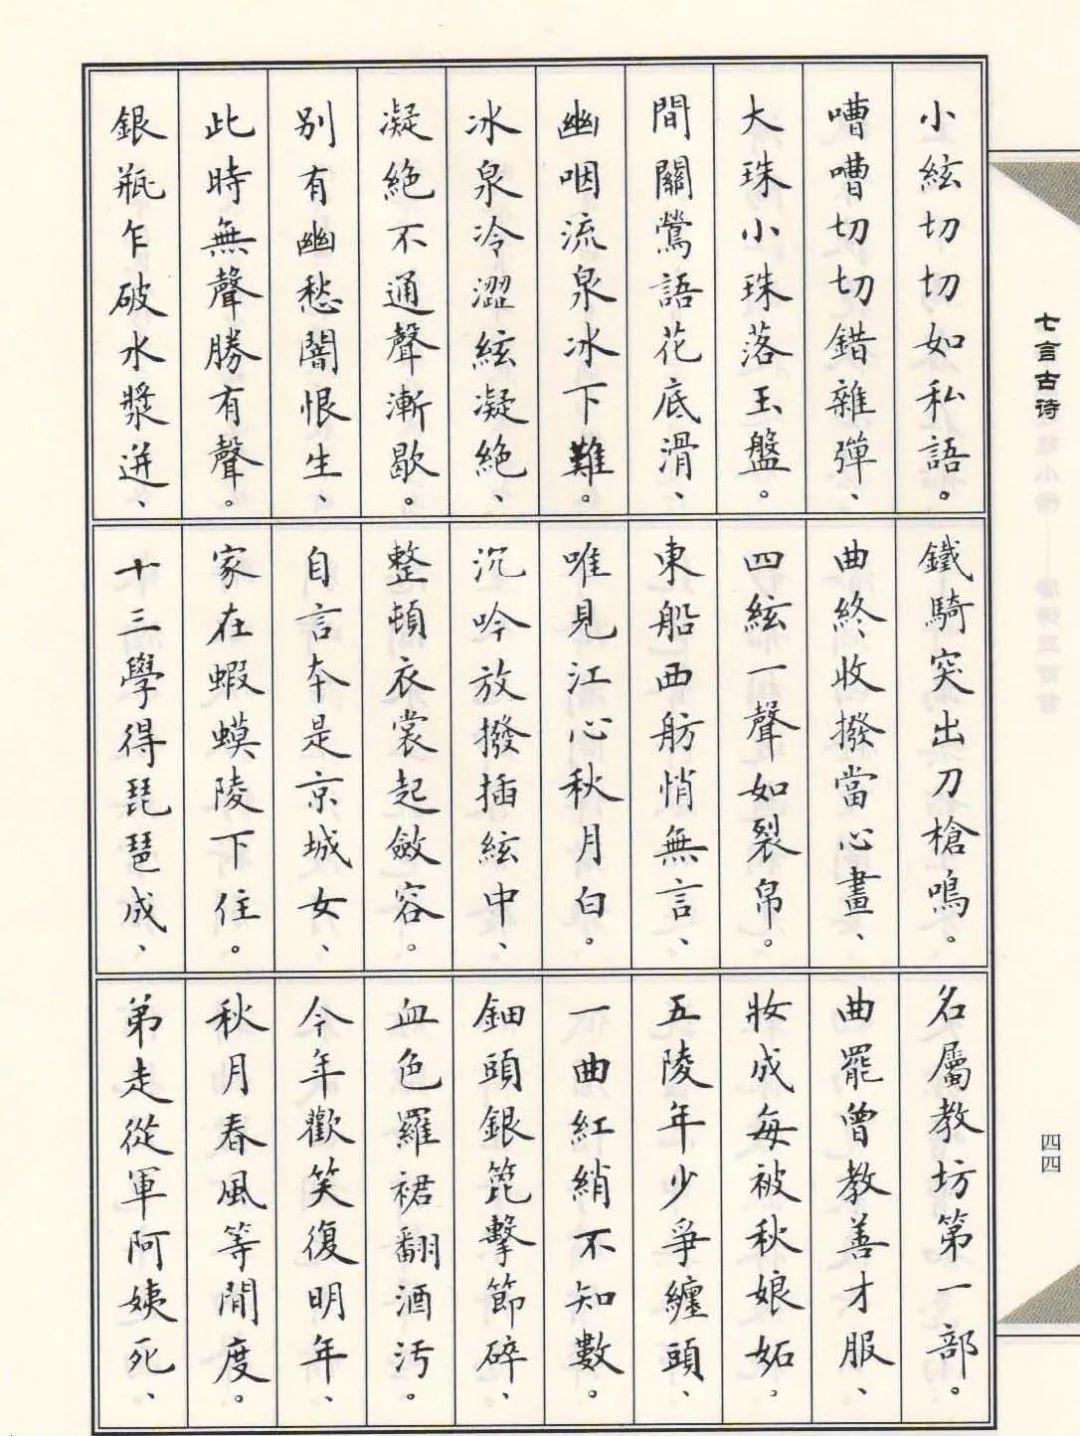 小絃切切如私語。
嘈嘈切切錯雜彈、
大珠小珠落玉盤。
間關鶯語花底滑、
幽咽流泉冰下難。
冰泉冷澀絃凝絕、
凝絕不通聲漸歇。
別有幽愁闇恨生、
此時無聲勝有聲。
銀瓶乍破水漿迸、
鐵騎突出刀槍鳴。
曲終收撥當心畫、
四絃一聲如裂帛。
東船西舫悄無言、
唯見江心秋月白。
沉吟放撥插絃中、
整頓衣裳起斂容。
自言本是京城女、
家在蝦蟆陵下住。
十三學得琵琶成、
名屬教坊第一部。
曲罷曾教善才服、
妝成每被秋娘妬。
五陵年少爭纏頭、
一曲紅綃不知數。
鈿頭銀篦擊節碎、
血色羅裙翻酒汚。
今年歡笑復明年、
秋月春風等閒度。
弟走從軍阿姨死、
七言古诗
四四